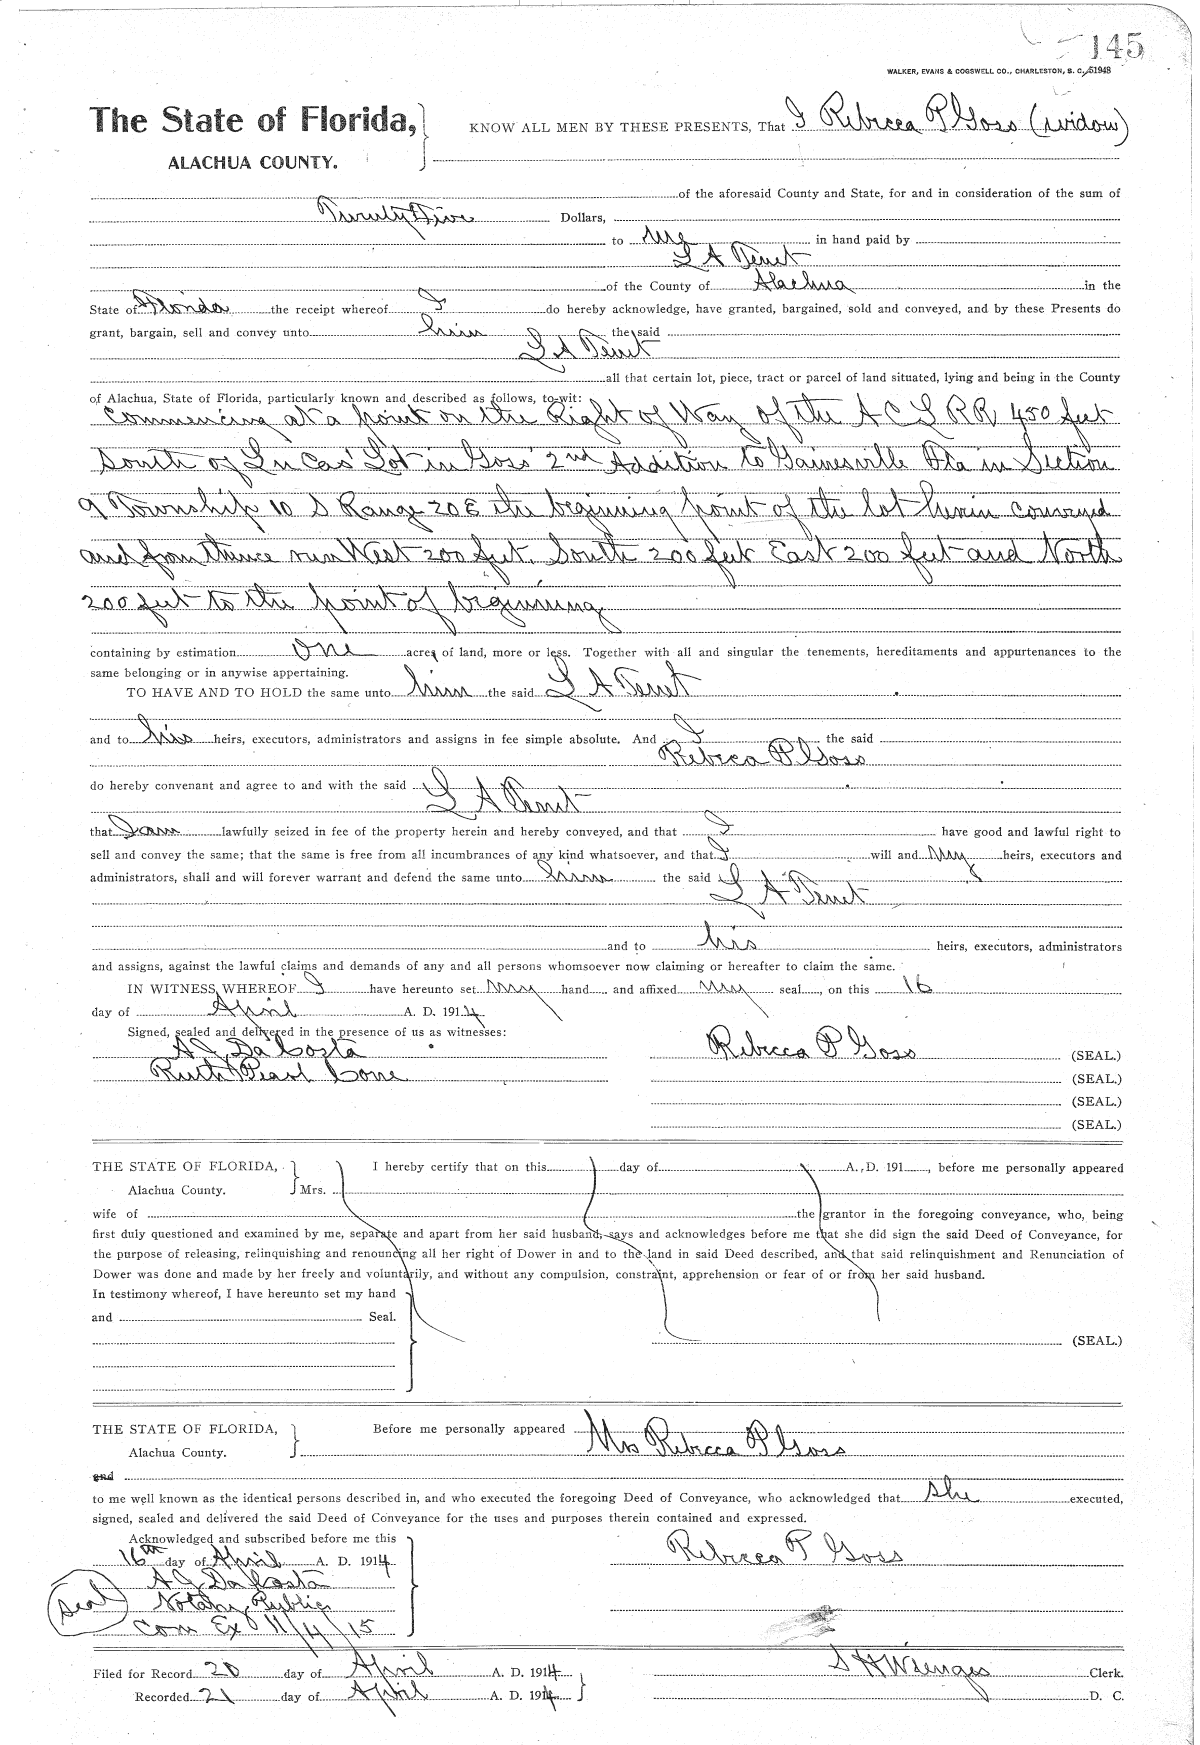 145
WALKER, EVANS & COGSWELL CO., CHARLESTON, S. C. 51948
The State of Florida,
ALACHUA COUNTY.
KNOW ALL MEN BY THESE PRESENTS, That I Rebecca P Goss (widow)
of the aforesaid County and State, for and in consideration of the sum of
Twenty Five Dollars,
to me in hand paid by
L A
of the County of Alachua in the
State of Florida the receipt whereof I do hereby acknowledge, have granted, bargained, sold and conveyed, and by these Presents do
grant, bargain, sell and convey unto him the said
L A
all that certain lot, piece, tract or parcel of land situated, lying and being in the County
of Alachua, State of Florida, particularly known and described as follows, to-wit:
Commencing at a point on the Right of Way of the A C L RR 450 feet
South of Lucas' Lot in Goss' 2nd Addition to Gainesville Fla in Section
9 Township 10 S Range 20 E the beginning point of the lot herein conveyed
and from thence run West 200 feet. South 200 feet East 200 feet and North
200 feet to the point of beginning
containing by estimation One acre of land, more or less. Together with all and singular the tenements, hereditaments and appurtenances to the
same belonging or in anywise appertaining.
TO HAVE AND TO HOLD the same unto him the said L A
and to his heirs, executors, administrators and assigns in fee simple absolute. And I the said
Rebecca P Goss
do hereby convenant and agree to and with the said
L A
that I am lawfully seized in fee of the property herein and hereby conveyed, and that I have good and lawful right to
sell and convey the same; that the same is free from all incumbrances of any kind whatsoever, and that I will and my heirs, executors and
administrators, shall and will forever warrant and defend the same unto him the said
L A
and to his heirs, executors, administrators
and assigns, against the lawful claims and demands of any and all persons whomsoever now claiming or hereafter to claim the same.
IN WITNESS WHEREOF I have hereunto set my hand and affixed my seal, on this 16
day of April A. D. 1914
Signed, sealed and delivered in the presence of us as witnesses:
A J Da Costa
Rebecca P Goss (SEAL.)
Ruth Pearl Cone
(SEAL.)
(SEAL.)
(SEAL.)
THE STATE OF FLORIDA,
Alachua County.
I hereby certify that on this day of A. D. 191 , before me personally appeared
Mrs.
wife of the grantor in the foregoing conveyance, who, being
first duly questioned and examined by me, separate and apart from her said husband, says and acknowledges before me that she did sign the said Deed of Conveyance, for
the purpose of releasing, relinquishing and renouncing all her right of Dower in and to the land in said Deed described, and that said relinquishment and Renunciation of
Dower was done and made by her freely and voluntarily, and without any compulsion, constraint, apprehension or fear of or from her said husband.
In testimony whereof, I have hereunto set my hand
and Seal.
(SEAL.)
THE STATE OF FLORIDA,
Alachua County.
Before me personally appeared Mrs Rebecca P Goss
and
to me well known as the identical persons described in, and who executed the foregoing Deed of Conveyance, who acknowledged that she executed,
signed, sealed and delivered the said Deed of Conveyance for the uses and purposes therein contained and expressed.
Acknowledged and subscribed before me this
16th day of April A. D. 1914
Rebecca P Goss
A J Da Costa
Seal
Notary Public
Com Ex 11/4/15
Filed for Record 20 day of April A. D. 1914
S H Wienges Clerk.
Recorded 21 day of April A. D. 1914
D. C.